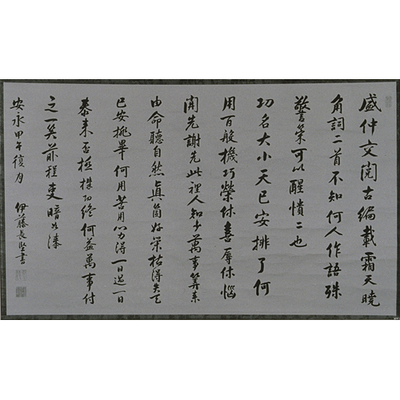 盛仲交閱古編載霜天曉
角詞二首不知何人作語殊
警策可以醒憒々也
功名大小天已安排了何
用百般機巧榮休喜辱休惱
先謝先此裡人知少萬事算来
由命聽自然真箇好栄枯得失天
已安排畢何用苦用心得一日過一日
泰来否極終何益萬事付
之一笑前程事暗如漆
安永甲午復月 伊藤長堅書